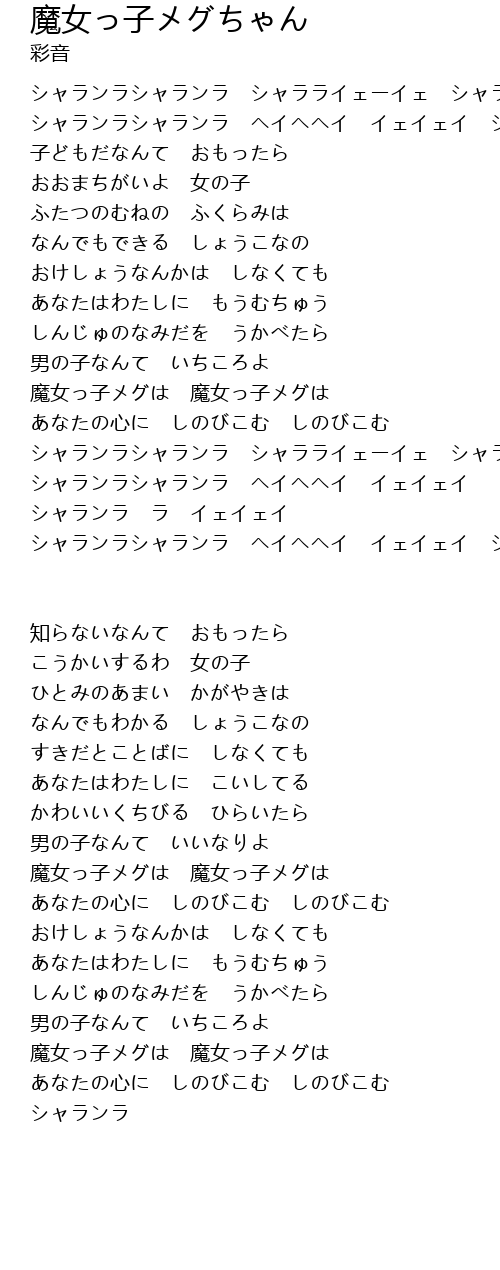 魔女っ子メグちゃん
彩音
シャランラシャランラ　シャラライェーイェ　シャラ
シャランラシャランラ　ヘイヘヘイ　イェイェイ　シ
子どもだなんて　おもったら
おおまちがいよ　女の子
ふたつのむねの　ふくらみは
なんでもできる　しょうこなの
おけしょうなんかは　しなくても
あなたはわたしに　もうむちゅう
しんじゅのなみだを　うかべたら
男の子なんて　いちころよ
魔女っ子メグは　魔女っ子メグは
あなたの心に　しのびこむ　しのびこむ
シャランラシャランラ　シャラライェーイェ　シャラ
シャランラシャランラ　ヘイヘヘイ　イェイェイ
シャランラ　ラ　イェイェイ
シャランラシャランラ　ヘイヘヘイ　イェイェイ　シ
知らないなんて　おもったら
こうかいするわ　女の子
ひとみのあまい　かがやきは
なんでもわかる　しょうこなの
すきだとことばに　しなくても
あなたはわたしに　こいしてる
かわいいくちびる　ひらいたら
男の子なんて　いいなりよ
魔女っ子メグは　魔女っ子メグは
あなたの心に　しのびこむ　しのびこむ
おけしょうなんかは　しなくても
あなたはわたしに　もうむちゅう
しんじゅのなみだを　うかべたら
男の子なんて　いちころよ
魔女っ子メグは　魔女っ子メグは
あなたの心に　しのびこむ　しのびこむ
シャランラ